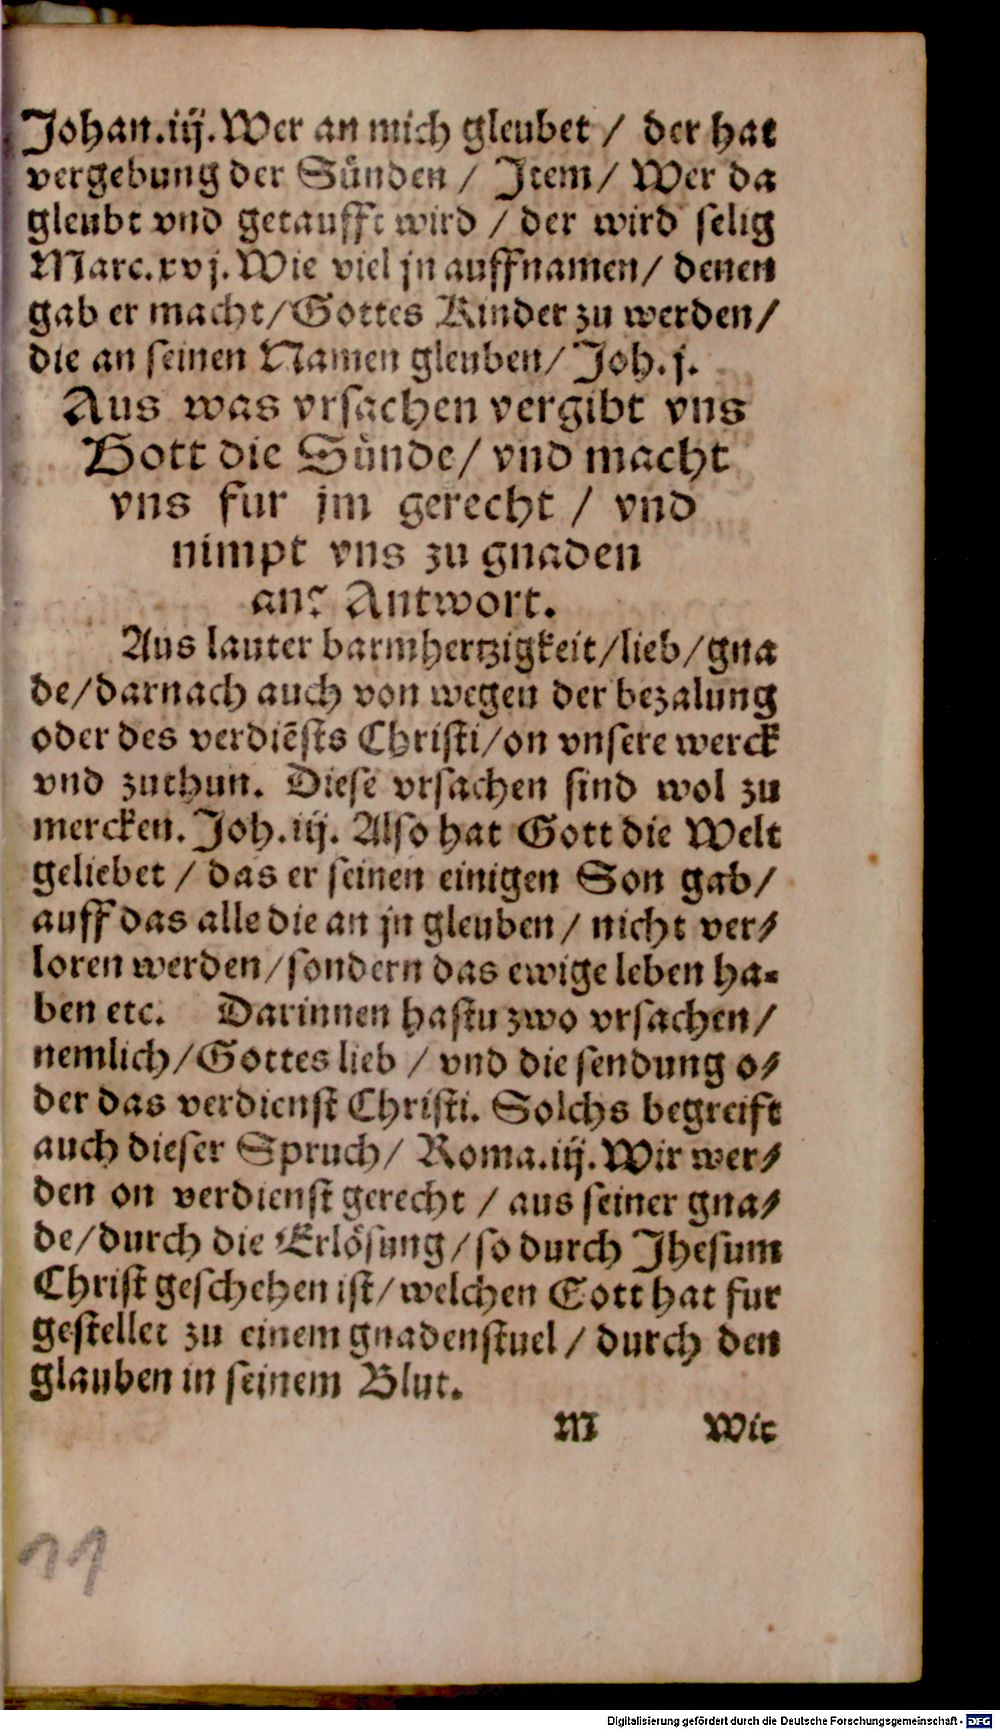 Johan.iij. Wer an mich gleubet / der hat
vergebung der Sünden / Item / Wer da
gleubt vnd getaufft wird / der wird selig
Marc.xvj. Wie viel jn auffnamen / denen
gab er macht / Gottes Kinder zu werden /
die an seinen Namen gleuben / Joh.j.
Aus was vrsachen vergibt vns
Gott die Sünde / vnd macht
vns fur jm gerecht / vnd
nimpt vns zu gnaden
an? Antwort.
Aus lauter barmhertzigkeit / lieb / gna
de / darnach auch von wegen der bezalung
oder des verdiẽsts Christi / on vnsere werck
vnd zuthun. Diese vrsachen sind wol zu
mercken. Joh.iij. Also hat Gott die Welt
geliebet / das er seinen einigen Son gab /
auff das alle die an jn gleuben / nicht ver/
loren werden / sondern das ewige leben ha-
ben etc. Darinnen hastu zwo vrsachen /
nemlich / Gottes lieb / vnd die sendung o/
der das verdienst Christi. Solchs begreift
auch dieser Spruch / Roma.iij. Wir wer/
den on verdienst gerecht / aus seiner gna/
de / durch die Erlösung / so durch Jhesum
Christ geschehen ist / welchen Gott hat fur
gestellet zu einem gnadenstuel / durch den
glauben in seinem Blut.
M Wir
11
Digitalisierung gefördert durch die Deutsche Forschungsgemeinschaft - DFG